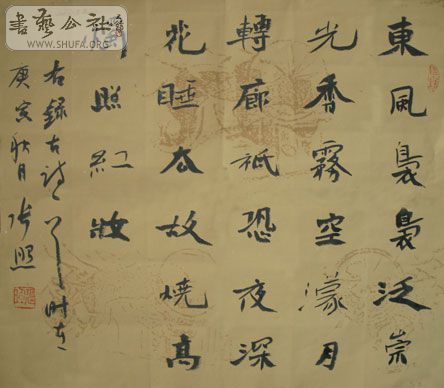 東風裊裊泛崇
光香霧空濛月
轉廊祇恐夜深
花睡去故燒高
照紅妝
右錄古詩一首時在
庚寅秋月張照
書藝公社
WWW.SHUFA.ORG